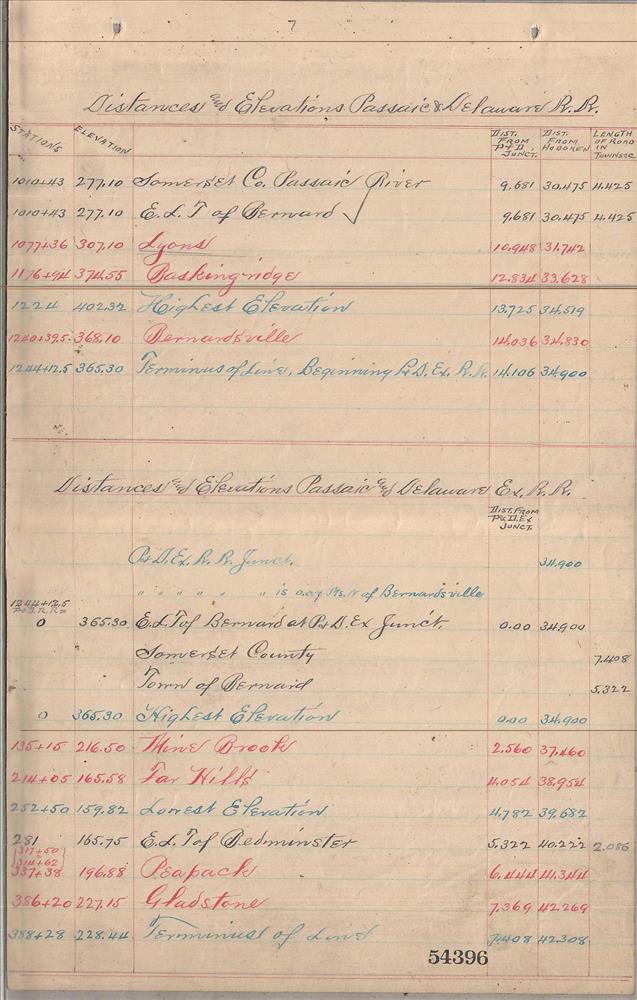 7
Distances and Elevations Passaic & Delaware R.R.
STATIONS ELEVATION DIST. FROM P&D. JUNCT. DIST. FROM HOBOKEN LENGTH OF ROAD IN TOWNS &C
1010+43 277.10 Somerset Co. Passaic River 9.681 30.475 4.425
1010+43 277.10 E.L.T of Bernard ✓ 9.681 30.475 4.425
1077+36 307.10 Lyons 10.948 31.742
1176+94 374.55 Baskingridge 12.834 33.628
1224 402.32 Highest Elevation 13.725 34.519
1240+39.5 368.10 Bernardsville 14.036 34.830
1244+12.5 365.30 Terminus of Line, Beginning P&D. Ex. R.R. 14.106 34.900
Distances and Elevations Passaic and Delaware Ex. R.R.
DIST. FROM P&D. Ex JUNCT.
P&D. Ex. R.R. Junct. 34.900
" " " " " " is 0.07 Ms. N of Bernardsville
1244+12.5 P&D.R.R.=
0 365.30 E.L.T of Bernard at P&D. Ex Junct. 0.00 34.900
Somerset County 7.408
Town of Bernard 5.322
0 365.30 Highest Elevation 0.00 34.900
135+15 216.50 Mine Brook 2.560 37.460
214+05 165.58 Far Hills 4.054 38.954
252+50 159.82 Lowest Elevation 4.782 39.682
281 165.75 E.L.T of Bedminster 5.322 40.222 2.086
317+50
314+62
337+38 196.88 Peapack 6.444 41.344
386+20 227.15 Gladstone 7.369 42.269
388+28 228.44 Terminus of Line 7.408 42.308
54396